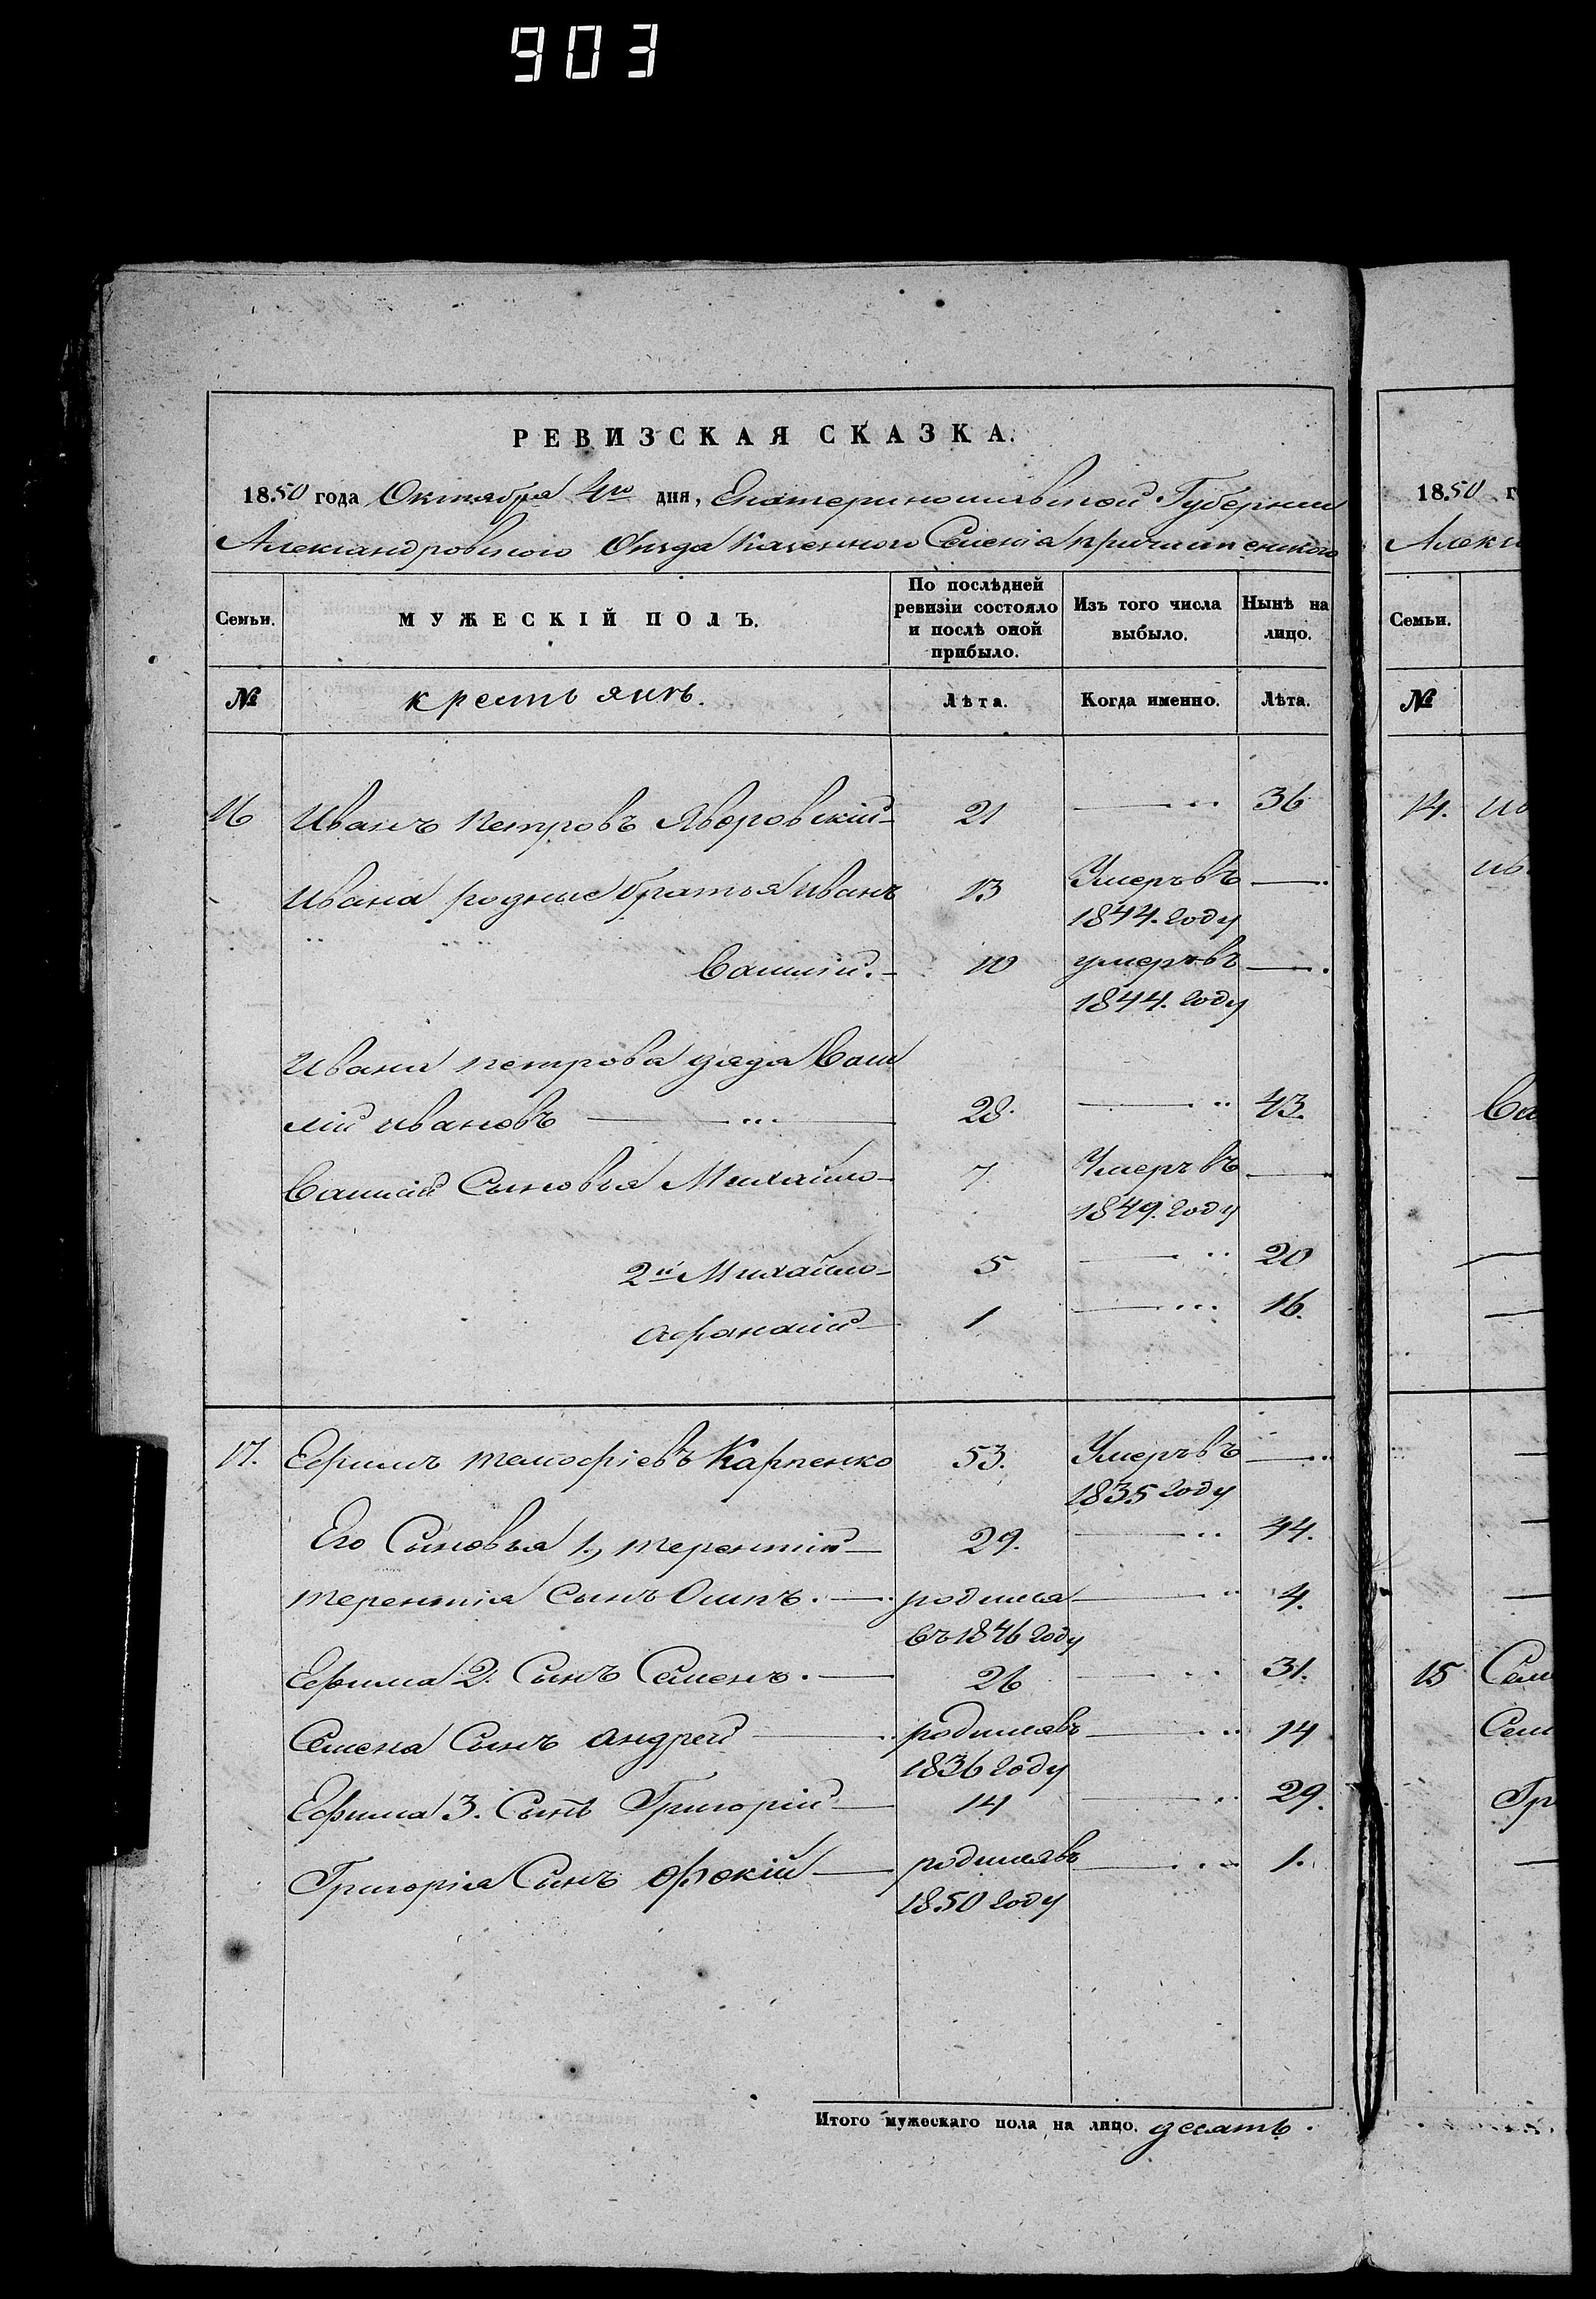 903
РЕВИЗСКАЯ СКАЗКА.
1850 года Октября 4го дня, Екатеринославской Губернии
Александровского Уезда Казенного Селенія
Семьи. МУЖЕСКІЙ ПОЛЪ. По послѣдней ревизіи состояло и послѣ оной прибыло. Изъ того числа выбыло. Нынѣ на лицо.
№ крестьянъ. Лѣта. Когда именно. Лѣта.
16 Иванъ Петровъ Яворовскій 21 36
Ивана родные братья Иванъ 13 Умеръ въ
1844. году
Василій. 10 умеръ въ
1844. году
Ивана петрова дядя Васи
лій ивановъ 28. 43.
Василія Сыновья Михайло 7. Умеръ въ
1849. году
2й Михайло 5 20
Афанасій 1 16.
17. Ефимъ темофіевъ Карпенко 53. Умеръ въ
1835 году
Его Сыновья 1., терентій 29. 44.
терентія сынъ Осипъ. родился 4.
въ 1846 году
Ефима 2. Сынъ Семенъ. 26 31.
Семена Сынъ андрей родился въ 14
1836 году
Ефима 3. Сынъ Григорій 14 29.
Григорія Сынъ фокій родился въ 1.
1850 году
Итого мужескаго пола на лицо. десять.
1850 г
Алекс
Семьи.
№
14. ив
ив
Ва
15 Сем
Сем
Гр